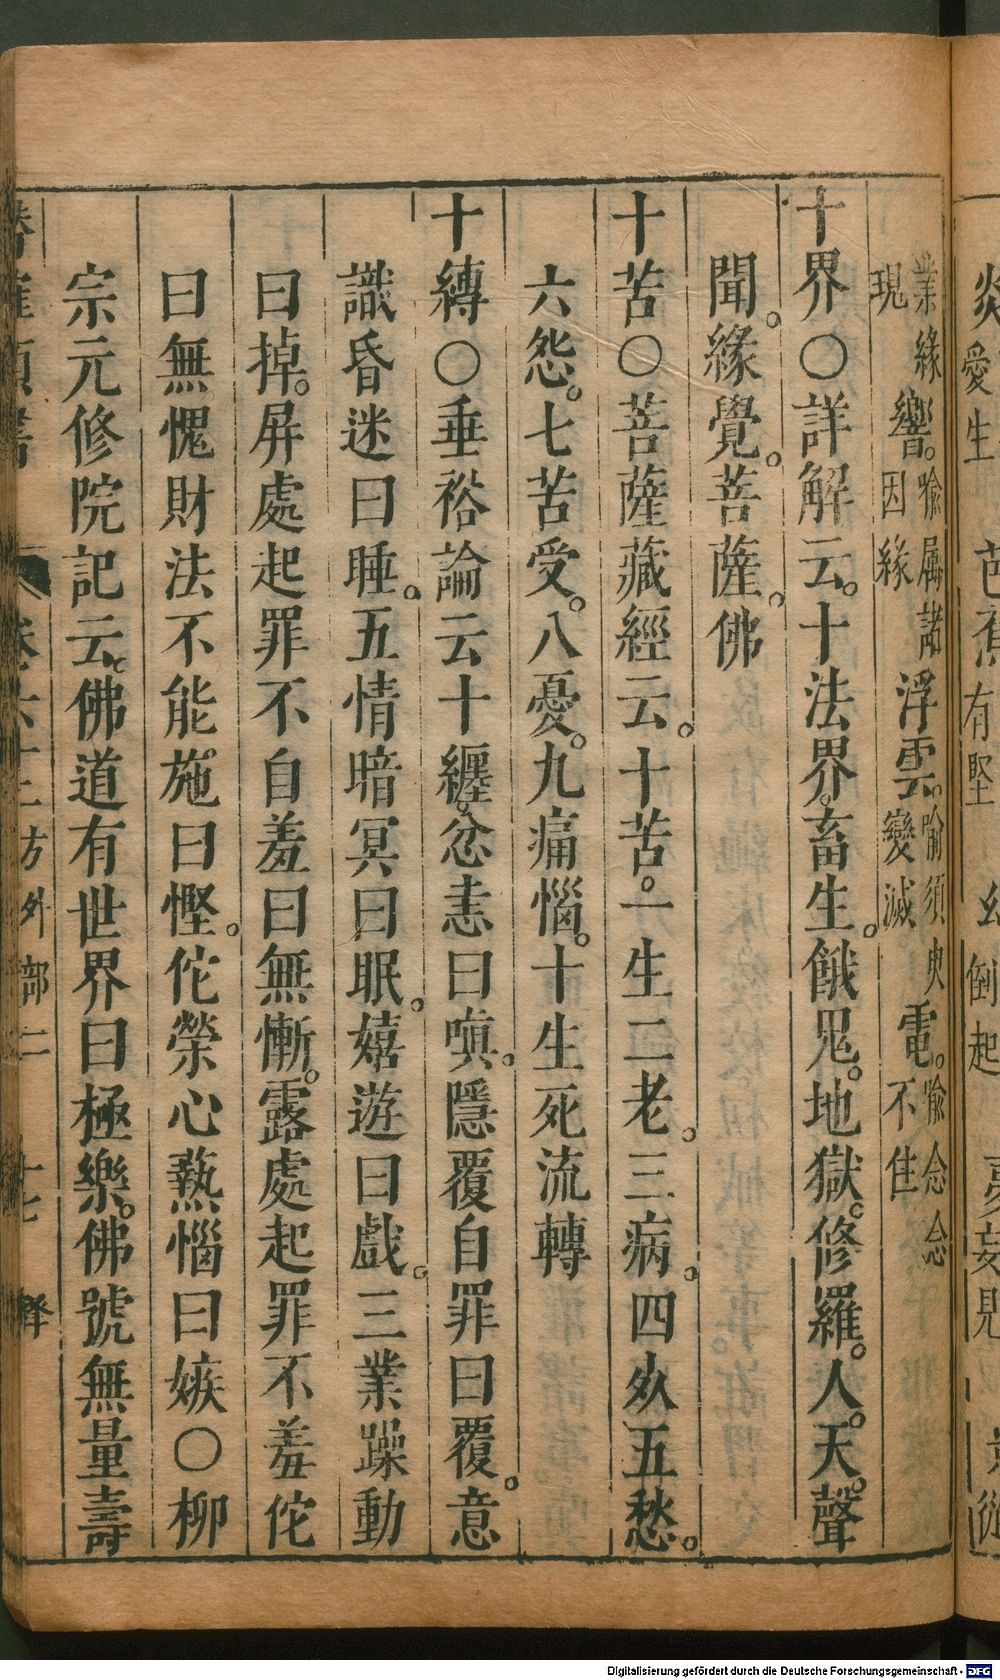 業緣現 響。喻屬諸因緣 浮雲。喻須臾變滅 電。喻念念不住
十界○詳解云。十法界。畜生。餓鬼。地獄。修羅。人。天。聲
聞。緣覺。菩薩。佛
十苦○菩薩藏經云。十苦。一生二老。三病。四死五愁。
六怨。七苦受。八憂。九痛惱。十生死流轉
十縛○垂裕論云十纏。忿恚曰嗔。隱覆自罪曰覆。意
識昏迷曰睡。五情暗冥曰眠。嬉遊曰戲。三業躁動
曰掉。屏處起罪不自羞曰無慚。露處起罪不羞佗
曰無愧財法不能施曰慳。佗榮心熱惱曰嫉○柳
宗元修院記云。佛道有世界曰極樂。佛號無量壽
卷六十三方外部二 十七 釋
炎愛生 芭蕉有堅 幻倒起
Digitalisierung gefördert durch die Deutsche Forschungsgemeinschaft - DFG